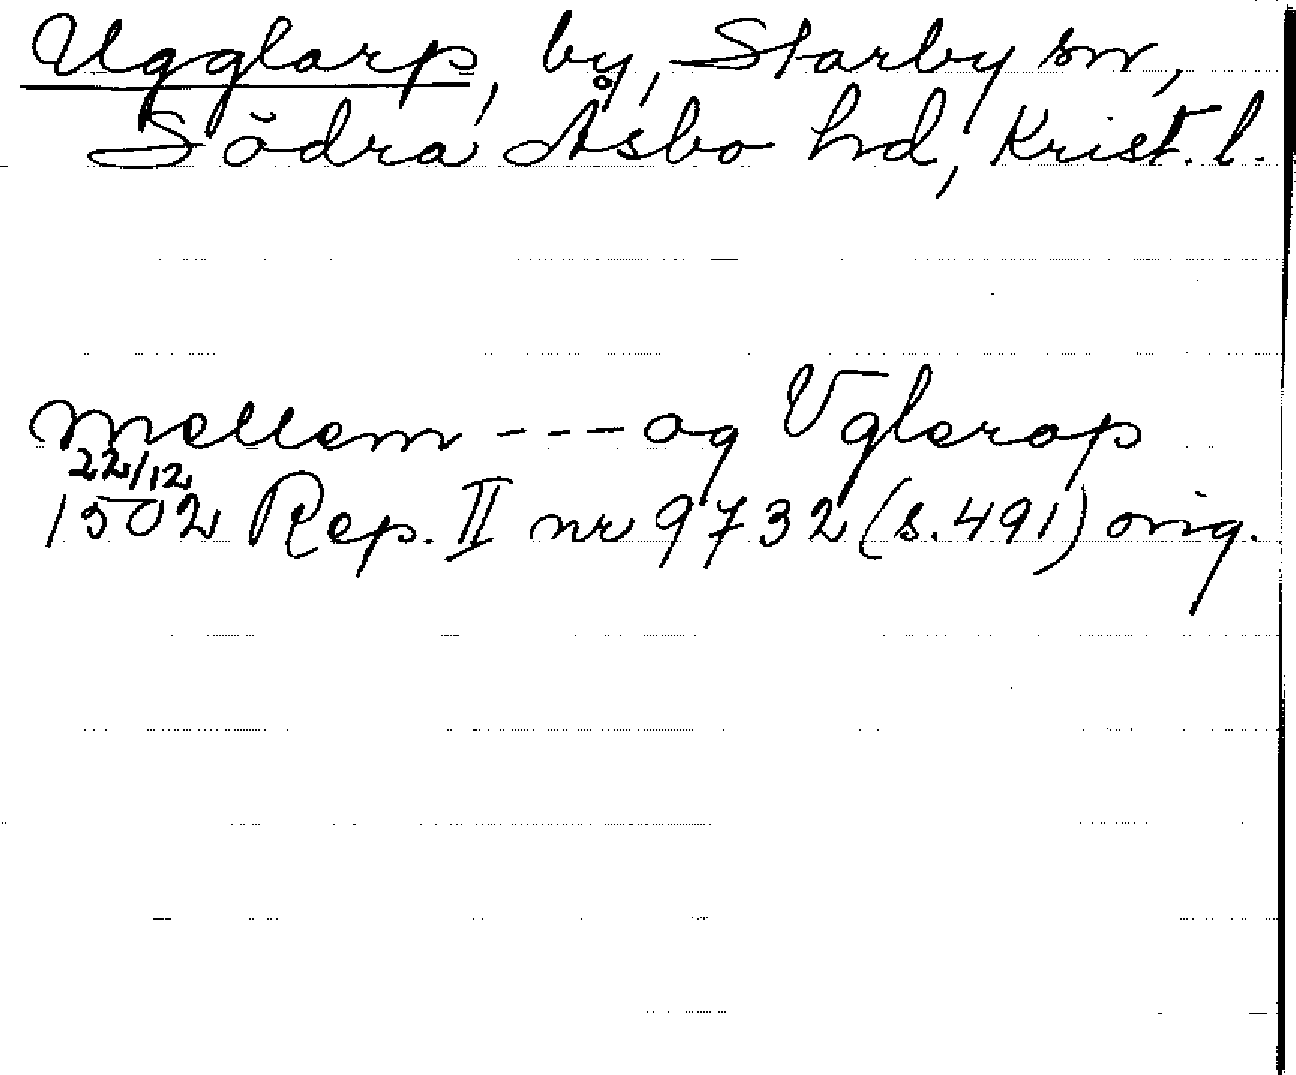 Ugglarp, by, Starby sn,
Södra Åsbo hd, Krist. l.
mellem --- og Vglerop
22/12
1502 Rep. II nr 9732 (s. 491) orig.